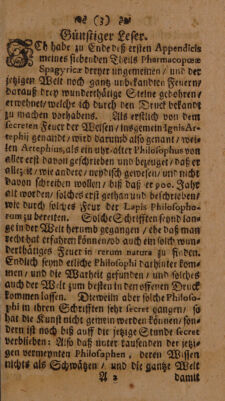 (3)
Günstiger Leser.
Ich habe zu Ende deß ersten Appendicis
meines siebenden Theils Pharmacopœæ
Spagyricæ dreyer ungemeinen / und der
jetzigen Welt noch gantz unbekandten Feuern /
darauß drey wunderthätige Steine gebohren /
erwehnet / welche ich durch den Druck bekandt
zu machen vorhabens. Als erstlich von dem
secreten Feuer der Weisen / insgemein Ignis Ar-
tephij genandt / wird darumb also genant / wei-
len Artephius, als ein uhr-alter Philosophus von
aller erst davon geschrieben und bezeuget / daß er
allezeit / wie andere / neydisch gewesen / und nicht
davon schreiben wollen / biß daß er 900. Jahr
alt worden / solches erst gethan und beschrieben /
wie durch solches Feur der Lapis Philosopho-
rum zu bereiten. Solche Schrifften seynd lan-
ge in der Welt herumb gegangen / ehe daß man
recht hat erfahren können / ob auch ein solch wun-
derthätiges Feuer in rerum natura zu finden.
Endlich seynd etliche Philosophi dahinter kom-
men / und die Warheit gefunden / und solches
auch der Welt zum besten in den offenen Druck
kommen lassen. Dieweiln aber solche Philoso-
phi in ihren Schrifften sehr secret gangen / so
hat die Kunst nicht gemein werden können / son-
dern ist noch biß auff die jetzige Stunde secret
verblieben: Also daß unter tausenden der jetzi-
gen vermeynten Philosophen, deren Wissen
nichts als Schwätzen / und die gantze Welt
A 2 damit